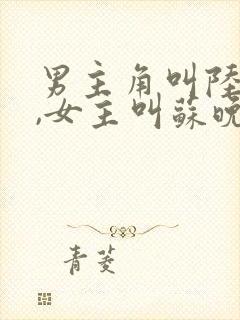 男主角叫陸
,女主叫蘇晚
青菱